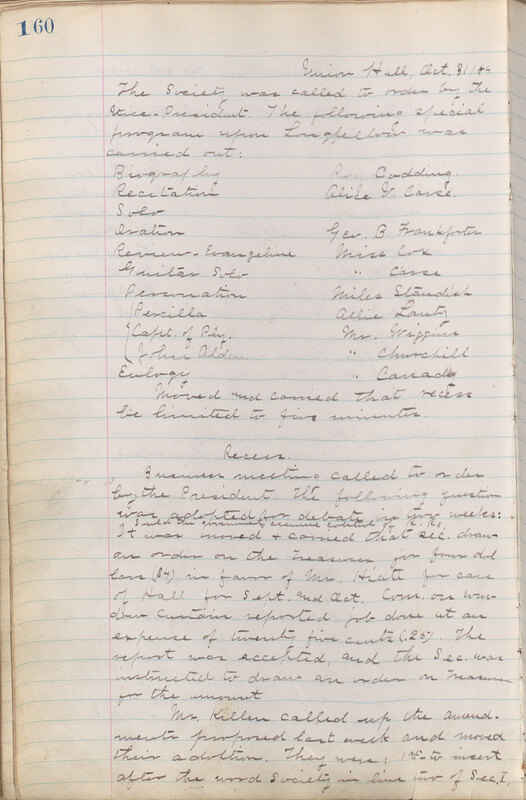 160
Union Hall, Oct. 31 '84
The Society was called to order by the
Vice-President. The following special
program upon Longfellow was
carried out:
Biography Roy Codding.
Recitation Alice V. Carse.
Solo
Oration Geo. B Frankforter
Review-Evangeline Miss Cox
Guitar Solo " Carse
Personation Miles Standish
Percilla Allie Lantz
Capt. of Ply. Mr. Wiggins
John Alden " Churchill
Eulogy " Canaday
Moved and carried that recess
be limited to five minutes.
Recess.
Business meeting called to order
by the President. The following question
was adopted for debate in two weeks:
Should the government assume control of R. Rs.
It was moved & carried that sec. draw
an order on the Treasurer for four dol
lars ($4) in favor of Mr. Hiatt for care
of Hall for Sept. and Oct. Com. on win-
dow curtain reported job done at an
expense of twenty five cents (.25). The
report was accepted, and the Sec. was
instructed to draw an order on Treasurer
for the amount
Mr. Killen called up the amend-
ments proposed last week and moved
their adoption. They were: 1st to insert
after the word Society in line two of Sec. I,